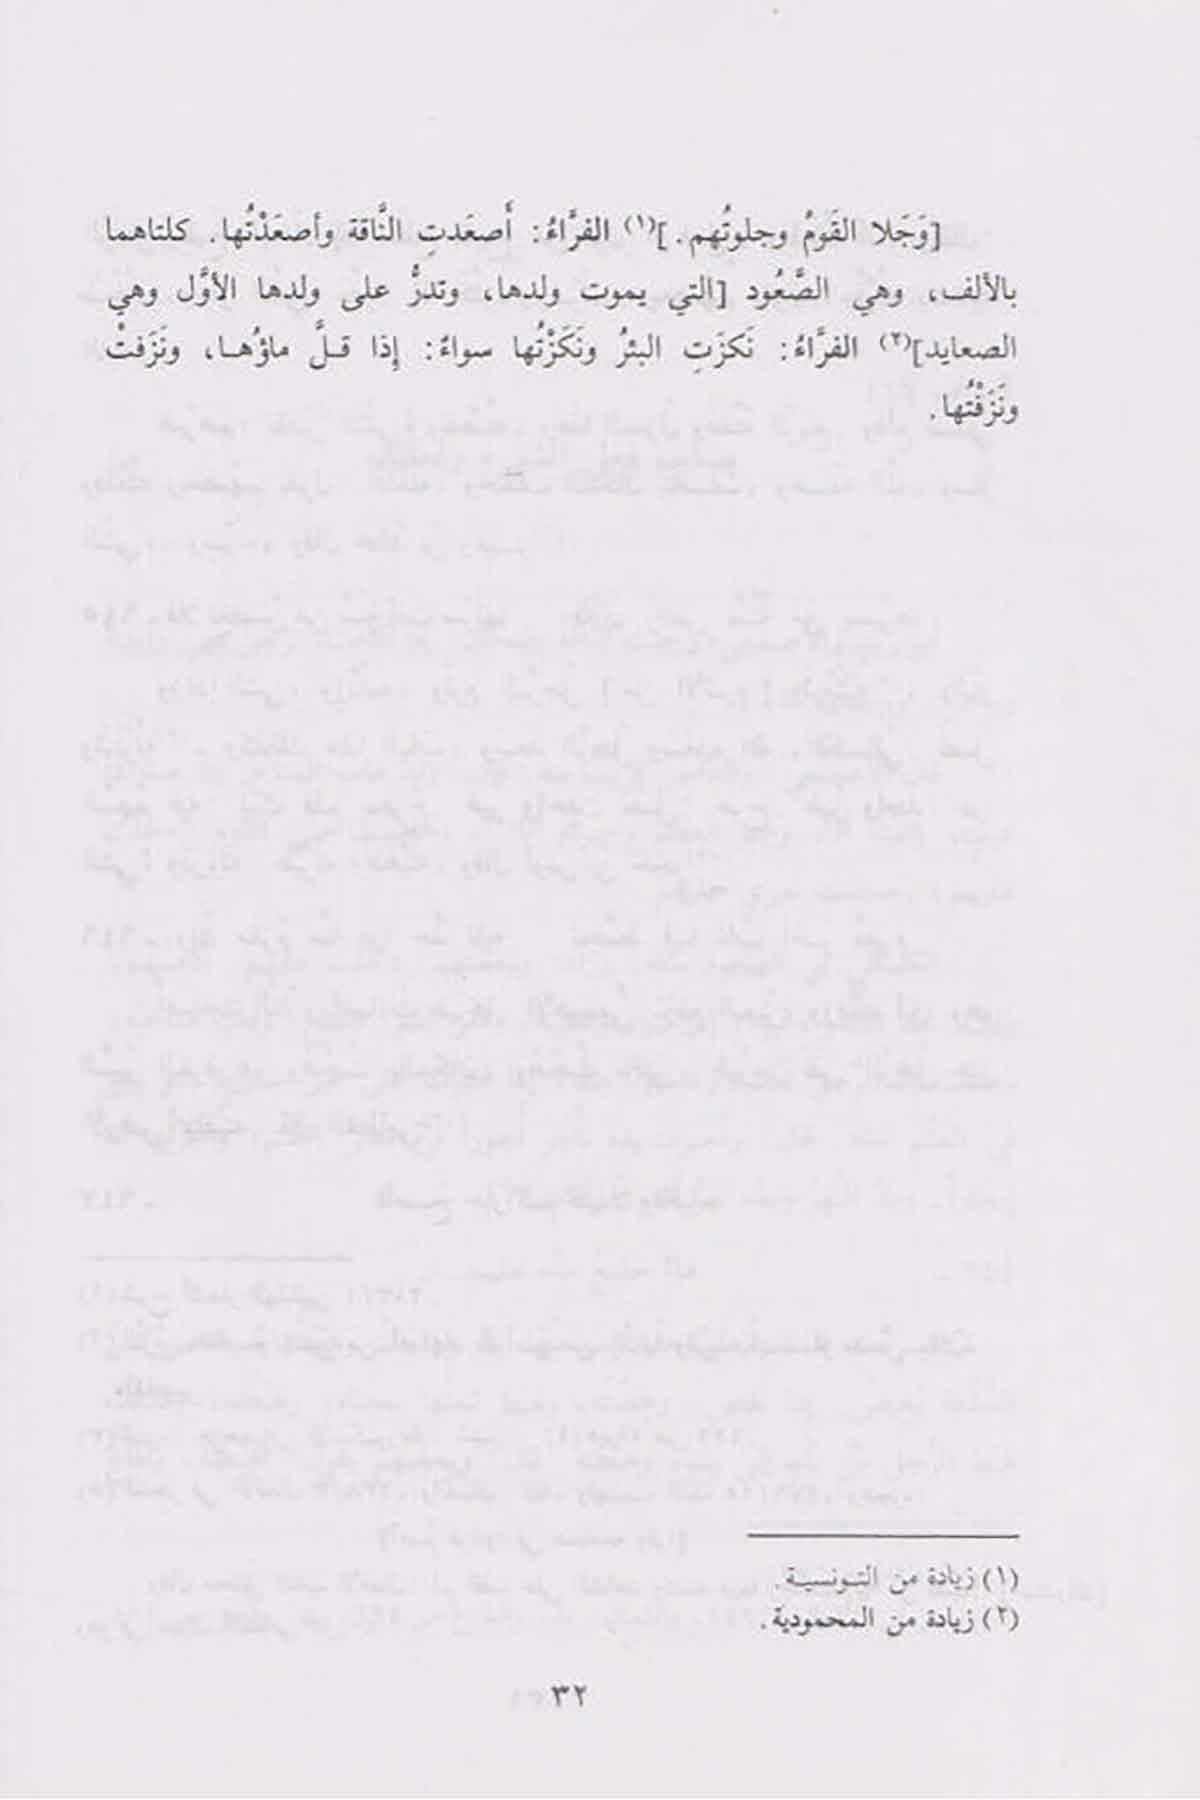 [وَجَلا القَومُ وجلوتُهم.](١) الفرَّاءُ: أَصعَدتِ النَّاقة وأصعَدْتُها. كلتاهما
بالألف، وهي الصَّعُود [التي يموت ولدها، وتدرُّ على ولدها الأوَّل وهي
الصعايد](٢) الفرَّاءُ: نَكزَتِ البئرُ ونَكَزْتُها سواءُ: إِذا قـلَّ ماؤُهـا، ونَزَفتْ
ونَزَفْتُها.
(١) زيادة من التـونسيـة.
(٢) زيادة من المحمودية.
٣٢